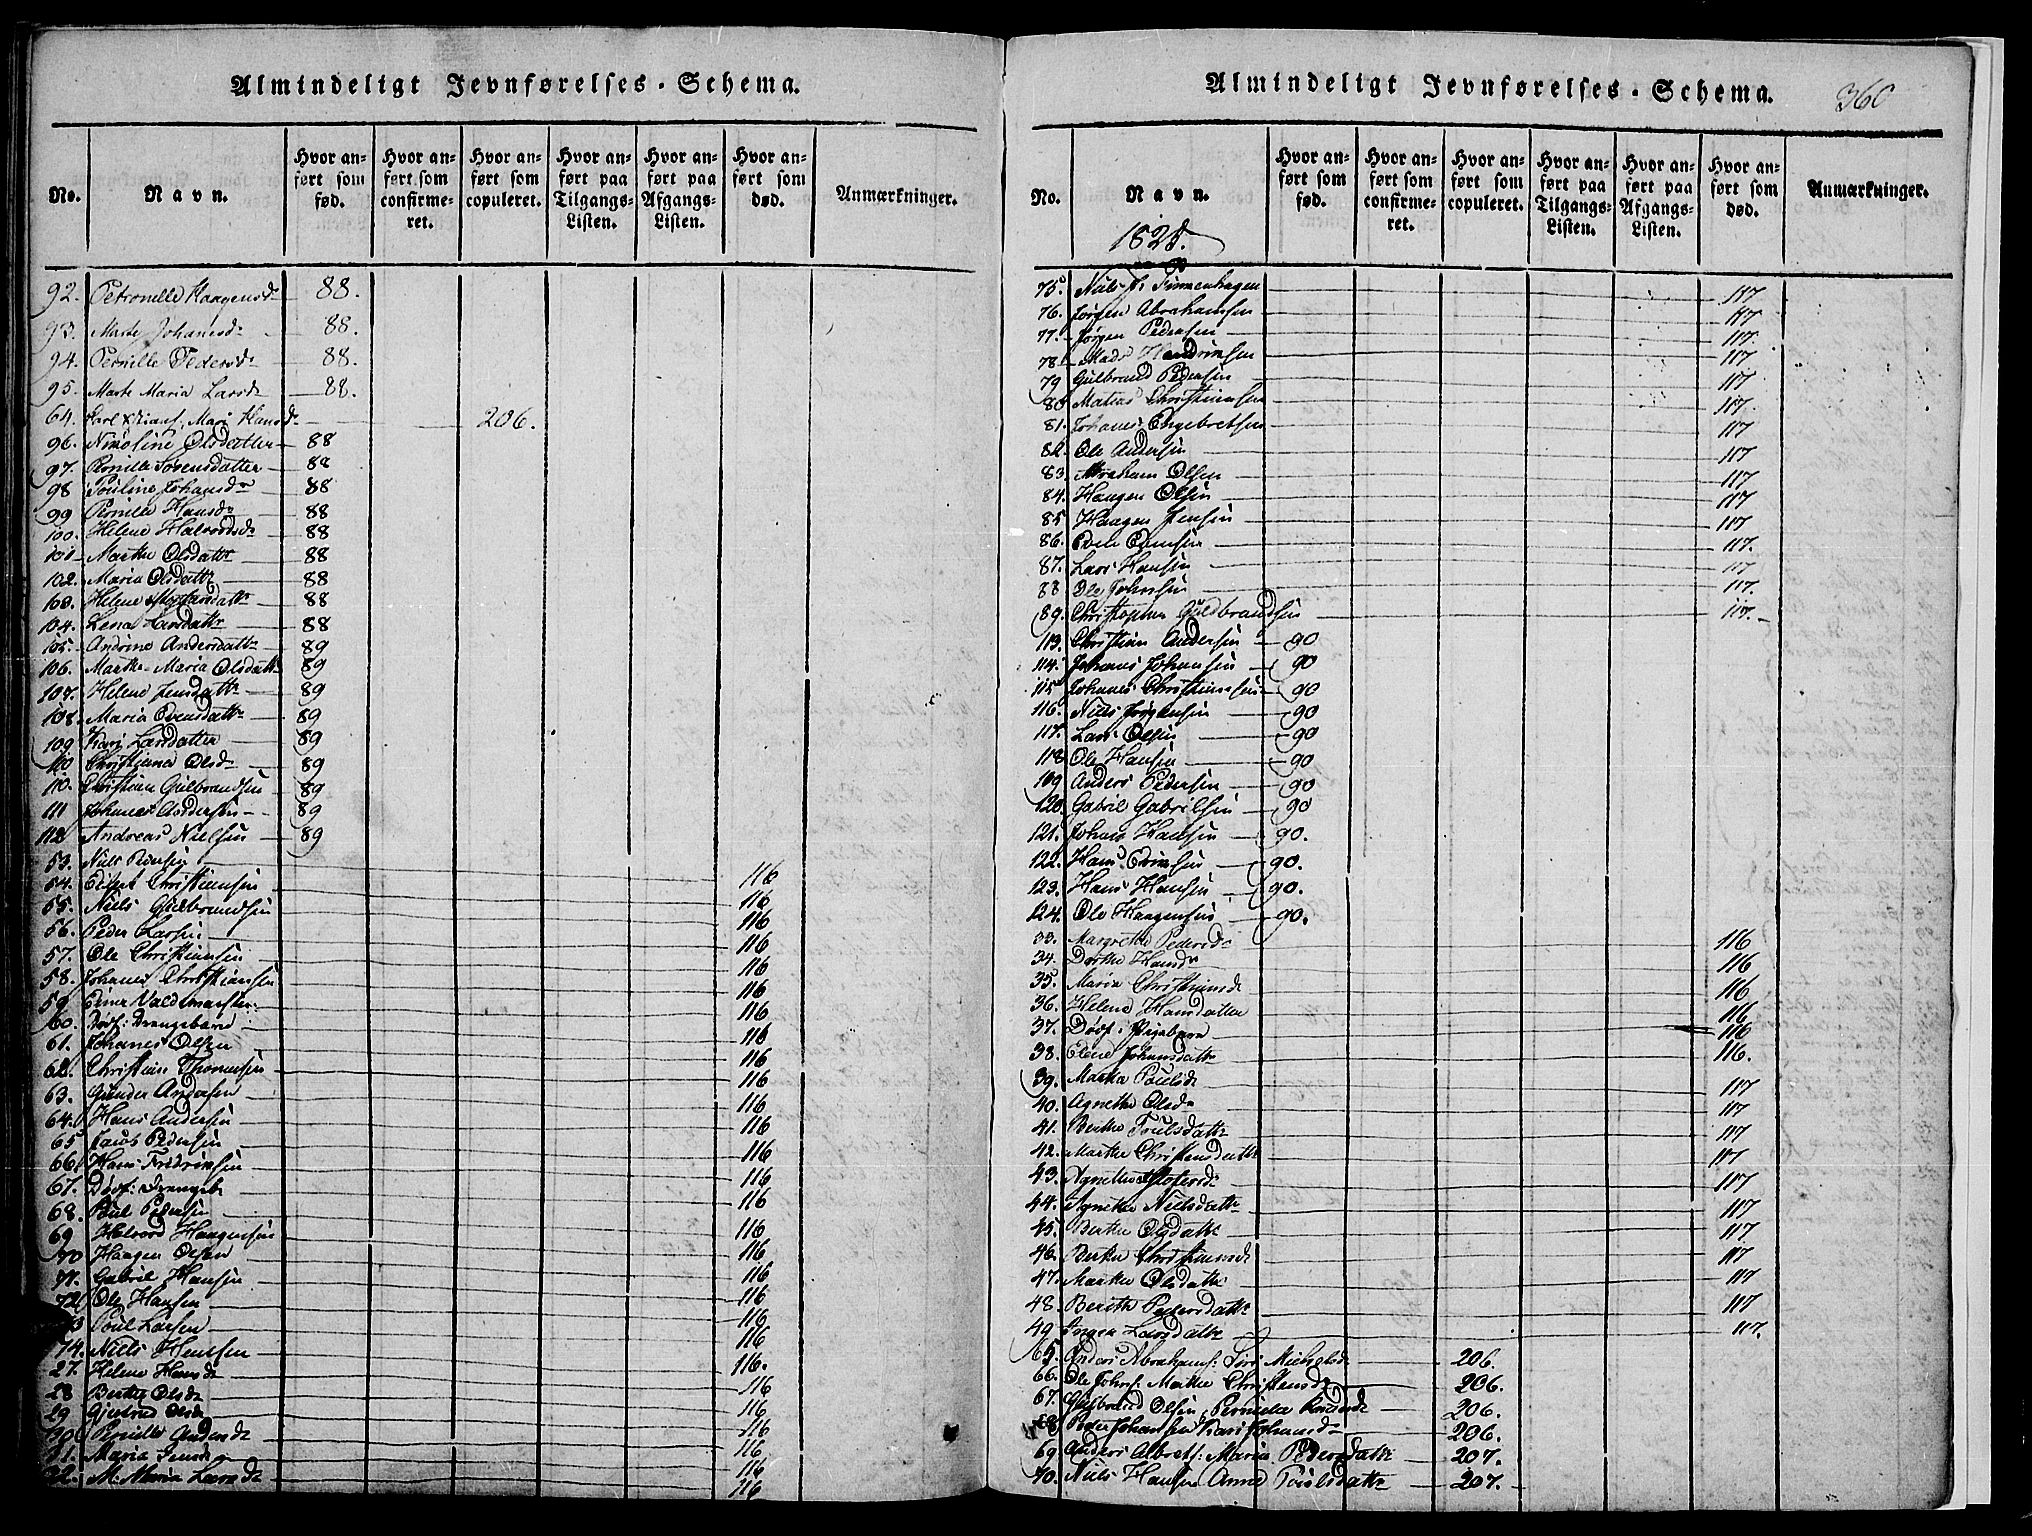 Almindeligt Jevnførelses-Schema.
No. Navn. Hvor anført som fød. Hvor anført som confirmeret. Hvor anført som copuleret. Hvor anført paa Tilgangs-Listen. Hvor anført paa Afgangs-Listen. Hvor anført som død. Anmærkninger.
92. Petronelle Haagensdr 88.
93. Marte Johansdr 88.
94. Pernille Pedersdr 88.
95. Marte Maria Larsdr 88.
64. Mari Hansdr 206.
96. Nicoline Olsdatter 88
97. Pernille Sørensdatter 88
98 Pouline Johansdr 88
99 Pernille Hansdr 88
100. Helene Halvordsdr 88
101 Marthe Olsdattr 88
102. Maria Olsdattr 88
103. Helene 88
104. Lena Larsdattr 88
105. Andrine Andersdattr 89
106. Marthe Maria Olsdattr 89
107. Helene Jensdattr 89
108. Maria Evensdattr 89
109 Kari Larsdatter 89
110 Christiane Olsdr 89
110. Christian Gulbrandsen 89
111 Johannes Andersen 89
112 Andreas Nielsen 89
53. Niels Pedersen 116
54. Christiansen 116
55. Niels Gulbrandsen 116
56. Peder Larsen 116
57. Ole Christiansen 116
58. Johannes Christiansen 116
59. 116
60. Dødf: Drengebarn 116
61. Johannes Olsen 116
62. Christian Thomasen 116
63. Gunder Andersen 116
64. Hans Andersen 116
65 Jacob Pedersen 116
66 Hans Fredriksen 116
67. Dødf: Drengeb. 116
68. Poul Pedersen 116
69 Halvord Haagensen 116
70 Haagen Olsen 116
71. Gabriel Hansen 116
72 Ole Hansen 116
73 Poul Larsen 116
74. Niels Hansen 116.
27. Helene Hansdr 116
28 Berthe Olsdr 116
29 Gjertrud Olsdr 116
30 Pernille Andersdr 116
31. Maria Jensdr 116
32. M: Maria Larsdr 116
Almindeligt Jevnførelses-Schema. 360
No. Navn. Hvor anført som fød. Hvor anført som confirmeret. Hvor anført som copuleret. Hvor anført paa Tilgangs-Listen. Hvor anført paa Afgangs-Listen. Hvor anført som død. Anmærkninger.
1825.
75. Niels Finnenhagen 117
76. Jørgen Abrahamsen 117
77. Jørgen Pedersen 117.
78. Mads 117
79 Gulbrand Pedersen 117
80 Matias Christiansen 117
81. Johannes Engebretsen 117
82. Ole Andersen 117
83. Abraham Olsen 117
84. Haagen Olsen 117
85 Haagen Jensen 117
86. Even Evensen 117.
87. Lars Hansen 117
88 Ole Johnsen 117.
89. Christopher Guldbrandsen 117.
113. Christian Andersen 90
114. Johannes Johansen 90
115 Johannes Christiansen 90
116. Niels Jørgensen 90
117. Lars Olsen 90
118 Ole Hansen 90
119 Anders Pedersen 90
120 Gabriel Gabrielsen 90
121. Johan Hansen 90.
122. Hans 90.
123. Hans Hansen 90.
124. Ole Haagensen 90.
33. Margrethe Pedersdr 116
34. Dorthe Hansdr 116
35. Maria Christiansdr 116
36. Helene Hansdatter 116
37. Dødf: Pigebarn 116
38. Elene Johansdattr 116.
39. Marthe Poulsdr 117
40. Agnethe Olsdr 117
41. Berthe Poulsdattr 117
42. Marthe Christensdattr 117
43. Agnethe 117
44. Agnethe Nielsdattr 117
45. Berthe Olsdattr 117
46. Berthe Christiansdr 117
47. Marthe Olsdattr 117
48. Berethe Pedersdattr 117
49 Inger Larsdattr 117.
65. Anders Abrahams: Siri Michelsdr 206.
66. Ole Johns: Marthe Christensdr 206.
67. Gulbrand Olsen Pernille 206.
68 Peder Johansen Kari Johansdr 206.
69 Anders Albrets: Maria Pedersdattr 207.
70. Niels Hansen Anne Poulsdattr 207.